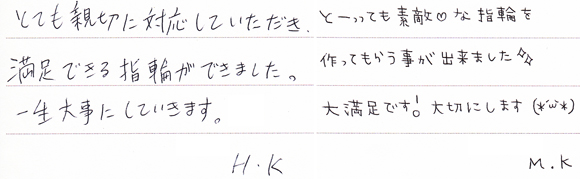 とても親切に対応していただき、
満足できる指輪ができました。
一生大事にしていきます。
H・K
とーっても素敵♡な指輪を
作ってもらう事が出来ました✨
大満足です！大切にします(*´ω`*)
M.K